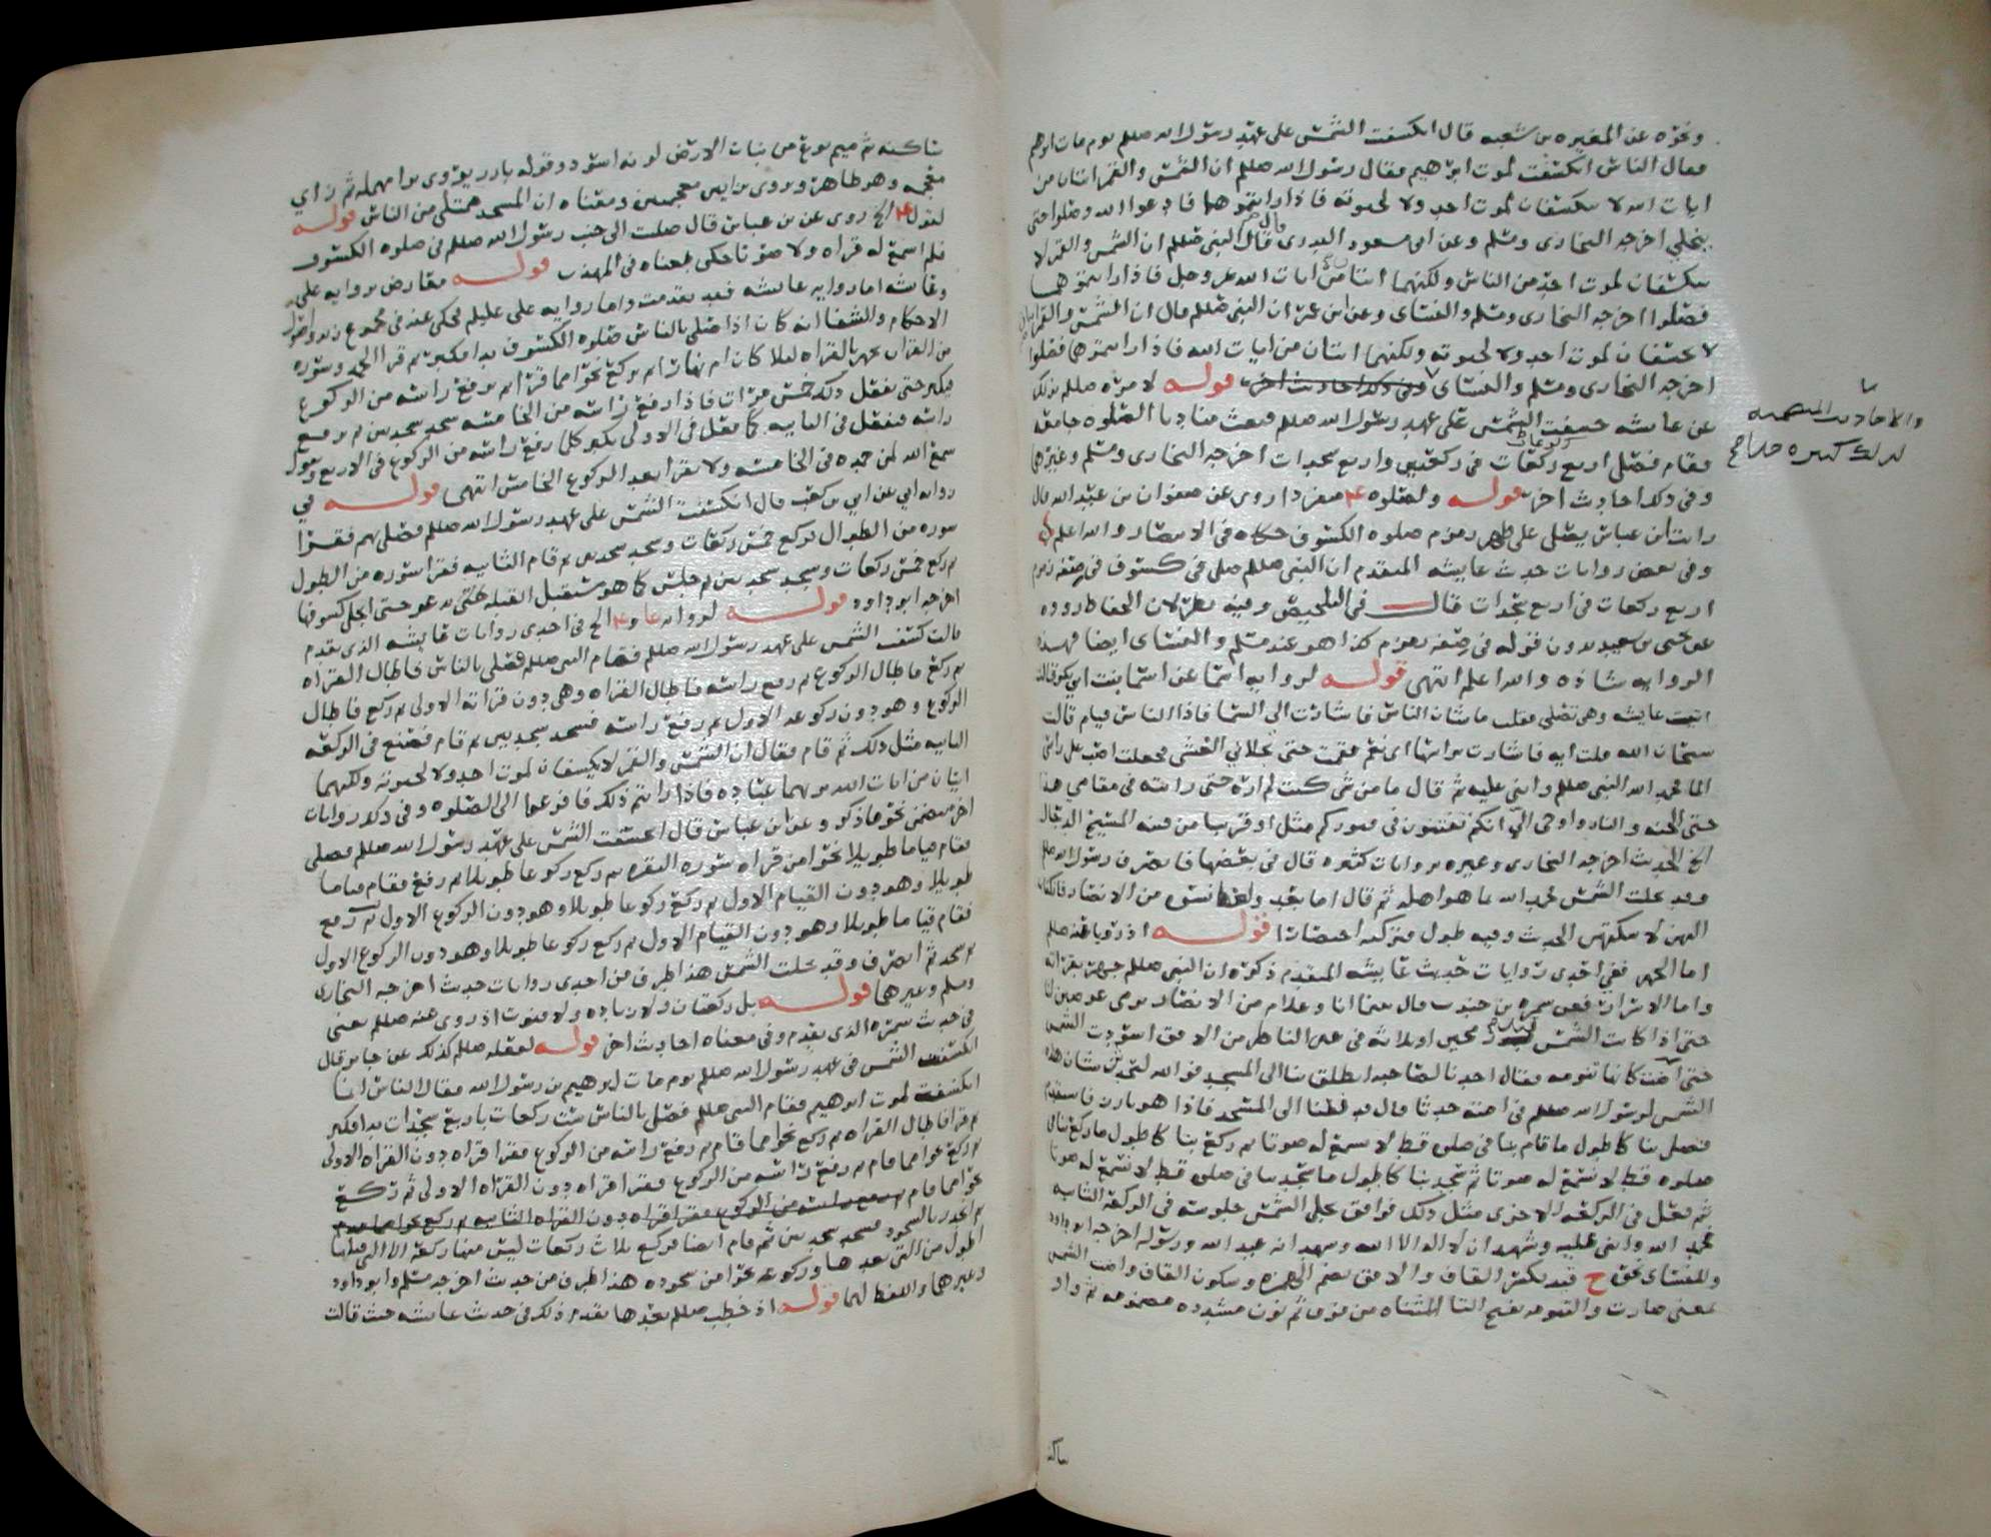 ونحوه عن المغيره بن شعبه قال انكسفت الشمس على عهد رسول الله صللم يوم مات ابرهيم
فقال الناس انكسفت لموت ابرهيم فقال رسول الله صللم ان الشمس والقمر ايتان من
ايات الله لا ينكسفان لموت احد ولا لحيوته فاذا رايتموهما فادعوا الله وصلوا حتى
ينجلي اخرجه البخارى ومسلم وعن ابى مسعود البدرى قال قال النبي صللم ان الشمس والقمر لا
ينكسفان لموت احد من الناس ولكنهما ايتان من ايات الله عز وجل فاذا رايتموهما
فصلوا اخرجه البخارى ومسلم والنسائ وعن ابن عمر ان النبي صللم قال ان الشمس والقمر
لا يخسفان لموت احد ولا لحيوته ولكنهما ايتان من ايات الله فاذا رايتموها فصلوا
اخرجه البخارى ومسلم والنسائ وفى ذلك احاديث اخر قوله لامره صللم بذلك
والاحاديث
لذلك كثيره
عن عايشه خسفت الشمس على عهد رسول الله صللم فبعث مناديا الصلوه جامعه
فقام فصلى اربع ركعات فى ركعتين واربع سجدات اخرجه البخارى ومسلم وغيرهما
وفى ذلك احاديث اخر قوله ولصلوه ع منفردا روى عن صفوان بن عبد الله قال
رايت ابن عباس يصلى على ظهر زمزم صلوه الكسوف حكاه فى الانتصار والله اعلم
وفى بعض روايات حديث عايشه المتقدم ان النبي صللم صلى فى كسوف فى صفه زمزم
اربع ركعات فى اربع سجدات قال فى التلخيص وفيه نظر لان الحفاظ رووه
عن يحيى بن سعيد بدون قوله فى صفه زمزم كذا هو عند مسلم والنسائ ايضا فهذه
الروايه شاذه والله اعلم انتهى قوله لروايه اسما عن اسما بنت ابي بكر قالت
اتيت عايشه وهى تصلي فقلت ما شان الناس فاشارت الى السما فاذا الناس قيام قالت
سبحان الله قلت ايه فاشارت براسها اى نعم فقمت حتى تجلاني الغشى فجعلت اصب على راسي
الما فحمد الله النبي صللم واثنى عليه ثم قال ما من شي كنت لم اره حتى رايته فى مقامي هذا
حتى الجنه والنار واوحى الي انكم تفتنون فى قبوركم مثل او قريبا من فتنه المسيح الدجال
الخ الحديث اخرجه البخارى وغيره بروايات كثيره قال فى بعضها فانصرف رسول الله صللم
وقد تجلت الشمس فحمد الله بما هو اهله ثم قال اما بعد ولغط نسوه من الانصار فانكفات
اليهن لاسكتهن الحديث وفيه طول فتركته اختصارا قوله اذ رويا عنه صللم
اما الجهر ففي احدى روايات حديث عايشه المتقدم ذكره ان النبي صللم جهر بقراته
واما الاسرار فعن سمره بن جندب قال بينما انا وغلام من الانصار نرمى غرضين لنا
حتى اذا كانت الشمس قيد رمحين او ثلاثه فى عين الناظر من الافق اسودت الشمس
حتى اضت كانها تنومه فقال احدنا لصاحبه انطلق بنا الى المسجد فوالله ليحدثن شان هذه
الشمس لرسول الله صللم فى امته حدثا قال فدفعنا الى المسجد فاذا هو بارز فاستقدم
فصلى بنا كاطول ما قام بنا فى صلوه قط لا نسمع له صوتا ثم ركع بنا كاطول ما ركع بنا فى
صلوه قط لا نسمع له صوتا ثم سجد بنا كاطول ما سجد بنا فى صلوه قط لا نسمع له صوتا
ثم فعل فى الركعه الاخرى مثل ذلك فوافق تجلى الشمس جلوسه فى الركعه الثانيه
فحمد الله واثنى عليه وشهد ان لا اله الا الله وشهد انه عبد الله ورسوله اخرجه ابوداود
وللنسائ نحوه ح قيد بكسر القاف والافق بضم الهمزه وسكون القاف واضت الشمس
بمعنى صارت والتنومه بفتح التا المثناه من فوق ثم نون مشدده مضمومه ثم واو
ساكنه
ساكنه ثم ميم نوع من نبات الارض لونه اسود وقوله بارز يروى برا مهمله ثم زاي
معجمه وهو ظاهر ويروى بزايين معجمتين ومعناه ان المسجد ممتلى من الناس قوله
لقول ع الخ روى عن بن عباس قال صليت الى جنب رسول الله صللم فى صلوه الكسوف
فلم اسمع له قراه ولا صوتا حكى معناه فى المهذب قوله معارض بروايه على
وعايشه اما روايه عايشه فقد تقدمت واما روايه على عليلم فحكى عنه فى مجموع زيد واصول
الاحكام والشفا انه كان اذا صلى بالناس صلوه الكسوف بدا فكبر ثم قرا الحمد وسوره
من القران يجهر بالقراه ليلا كان ام نهارا ثم يركع نحوا مما قرا ثم يرفع راسه من الركوع
فيكبر حتى يفعل ذلك خمس مرات فاذا رفع راسه من الخامسه سجد سجدتين ثم يرفع
راسه فيفعل فى الثانيه كما فعل فى الاولى يكبر كلما رفع راسه من الركوع فى الاربع ويقول
سمع الله لمن حمده فى الخامسه ولا يقرا بعد الركوع الخامس انتهى قوله في
روايه ابي عن ابي بن كعب قال انكسفت الشمس على عهد رسول الله صللم فصلى بهم فقرا
سوره من الطوال وركع خمس ركعات وسجد سجدتين ثم قام الثانيه فقرا سوره من الطول
ثم ركع خمس ركعات وسجد سجدتين ثم جلس كما هو مستقبل القبله يدعو حتى انجلى كسوفها
اخرجه ابوداود قوله لروايه عا وع الخ فى احدى روايات عايشه الذى تقدم
قالت كسفت الشمس على عهد رسول الله صللم فقام النبي صللم فصلى بالناس فاطال القراه
ثم ركع فاطال الركوع ثم رفع راسه فاطال القراه وهى دون قراته الاولى ثم ركع فاطال
الركوع وهو دون ركوعه الاول ثم رفع راسه فسجد سجدتين ثم قام فصنع فى الركعه
الثانيه مثل ذلك ثم قام فقال ان الشمس والقمر لا يكسفان لموت احد ولا لحيوته ولكنهما
ايتان من ايات الله يريهما عباده فاذا رايتم ذلك فافزعوا الى الصلوه وفى ذلك روايات
اخر تتضمن نحو ما ذكر وعن ابن عباس قال انخسفت الشمس على عهد رسول الله صللم فصلى
فقام قياما طويلا نحوا من قراه سوره البقره ثم ركع ركوعا طويلا ثم رفع فقام قياما
طويلا وهو دون القيام الاول ثم ركع ركوعا طويلا وهو دون الركوع الاول ثم رفع
فقام قياما طويلا وهو دون القيام الاول ثم ركع ركوعا طويلا وهو دون الركوع الاول
ثم سجد ثم انصرف وقد تجلت الشمس هذا طرف من احدى روايات حديث اخرجه البخارى
ومسلم وغيرهما قوله بل ركعتان ولا زياده ولا قنوت اذ روى عنه صللم يعنى
فى حديث سمره الذى تقدم وفى معناه احاديث اخر قوله لفعله صللم كذلك عن جابر قال
انكسفت الشمس فى عهد رسول الله صللم يوم مات ابرهيم بن رسول الله فقال الناس انما
انكسفت لموت ابرهيم فقام النبى صللم فصلى بالناس ست ركعات باربع سجدات بدا فكبر
ثم قرا فاطال القراه ثم ركع نحوا مما قام ثم رفع راسه من الركوع فقرا قراه دون القراه الاولى
ثم ركع نحوا مما قام ثم رفع راسه من الركوع فقرا قراه دون القراه الاولى ثم ركع
نحوا مما قام ثم رفع راسه من الركوع فقرا قراه دون القراه الثانيه ثم ركع نحوا مما قام
ثم انحدر بالسجود فسجد سجدتين ثم قام ايضا فركع ثلاث ركعات ليس منها ركعه الا التى قبلها
اطول من التى بعدها وركوعه نحوا من سجوده هذا طرف من حديث اخرجه مسلم وابوداود
وغيرهما واللفظ لهما قوله اذ خطب صللم بعدها تقدم ذلك فى حديث عايشه حيث قالت